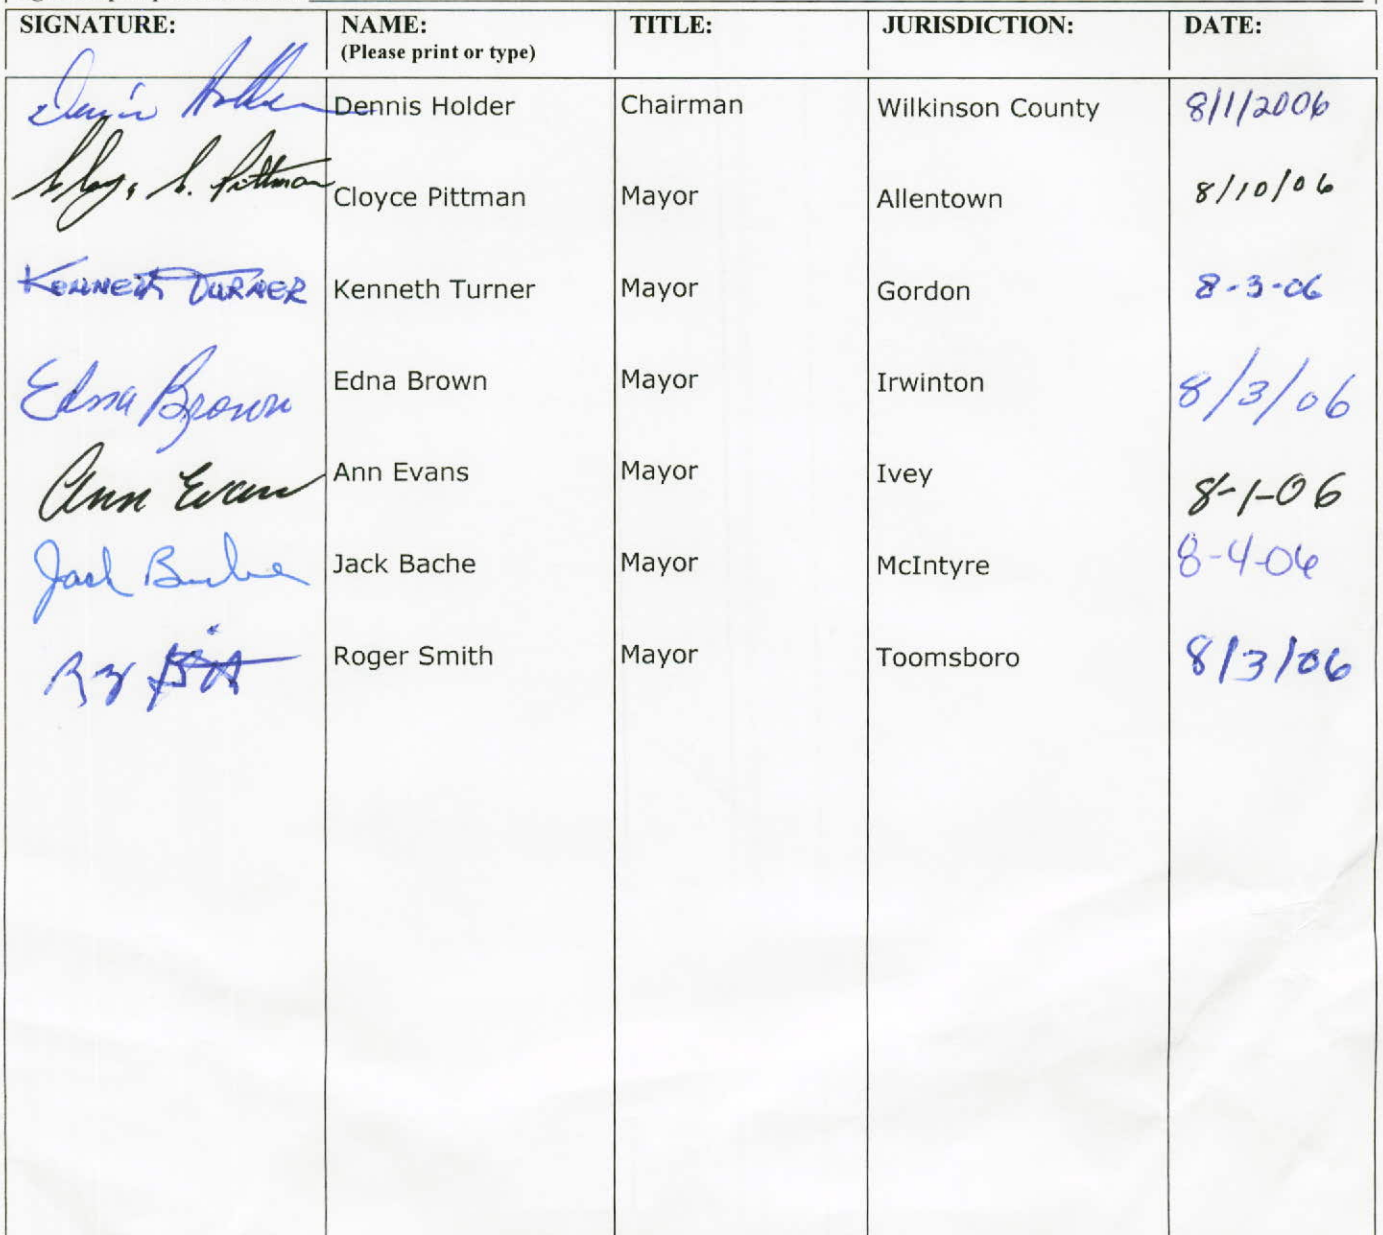 SIGNATURE: NAME: TITLE: JURISDICTION: DATE:
(Please print or type)
Dennis Holder Dennis Holder Chairman Wilkinson County 8/1/2006
Pittman Cloyce Pittman Mayor Allentown 8/10/06
KENNETH TURNER Kenneth Turner Mayor Gordon 8-3-06
Edna Brown Edna Brown Mayor Irwinton 8/3/06
Ann Evans Ann Evans Mayor Ivey 8-1-06
Jack Bache Jack Bache Mayor McIntyre 8-4-06
Roger Smith Mayor Toomsboro 8/3/06